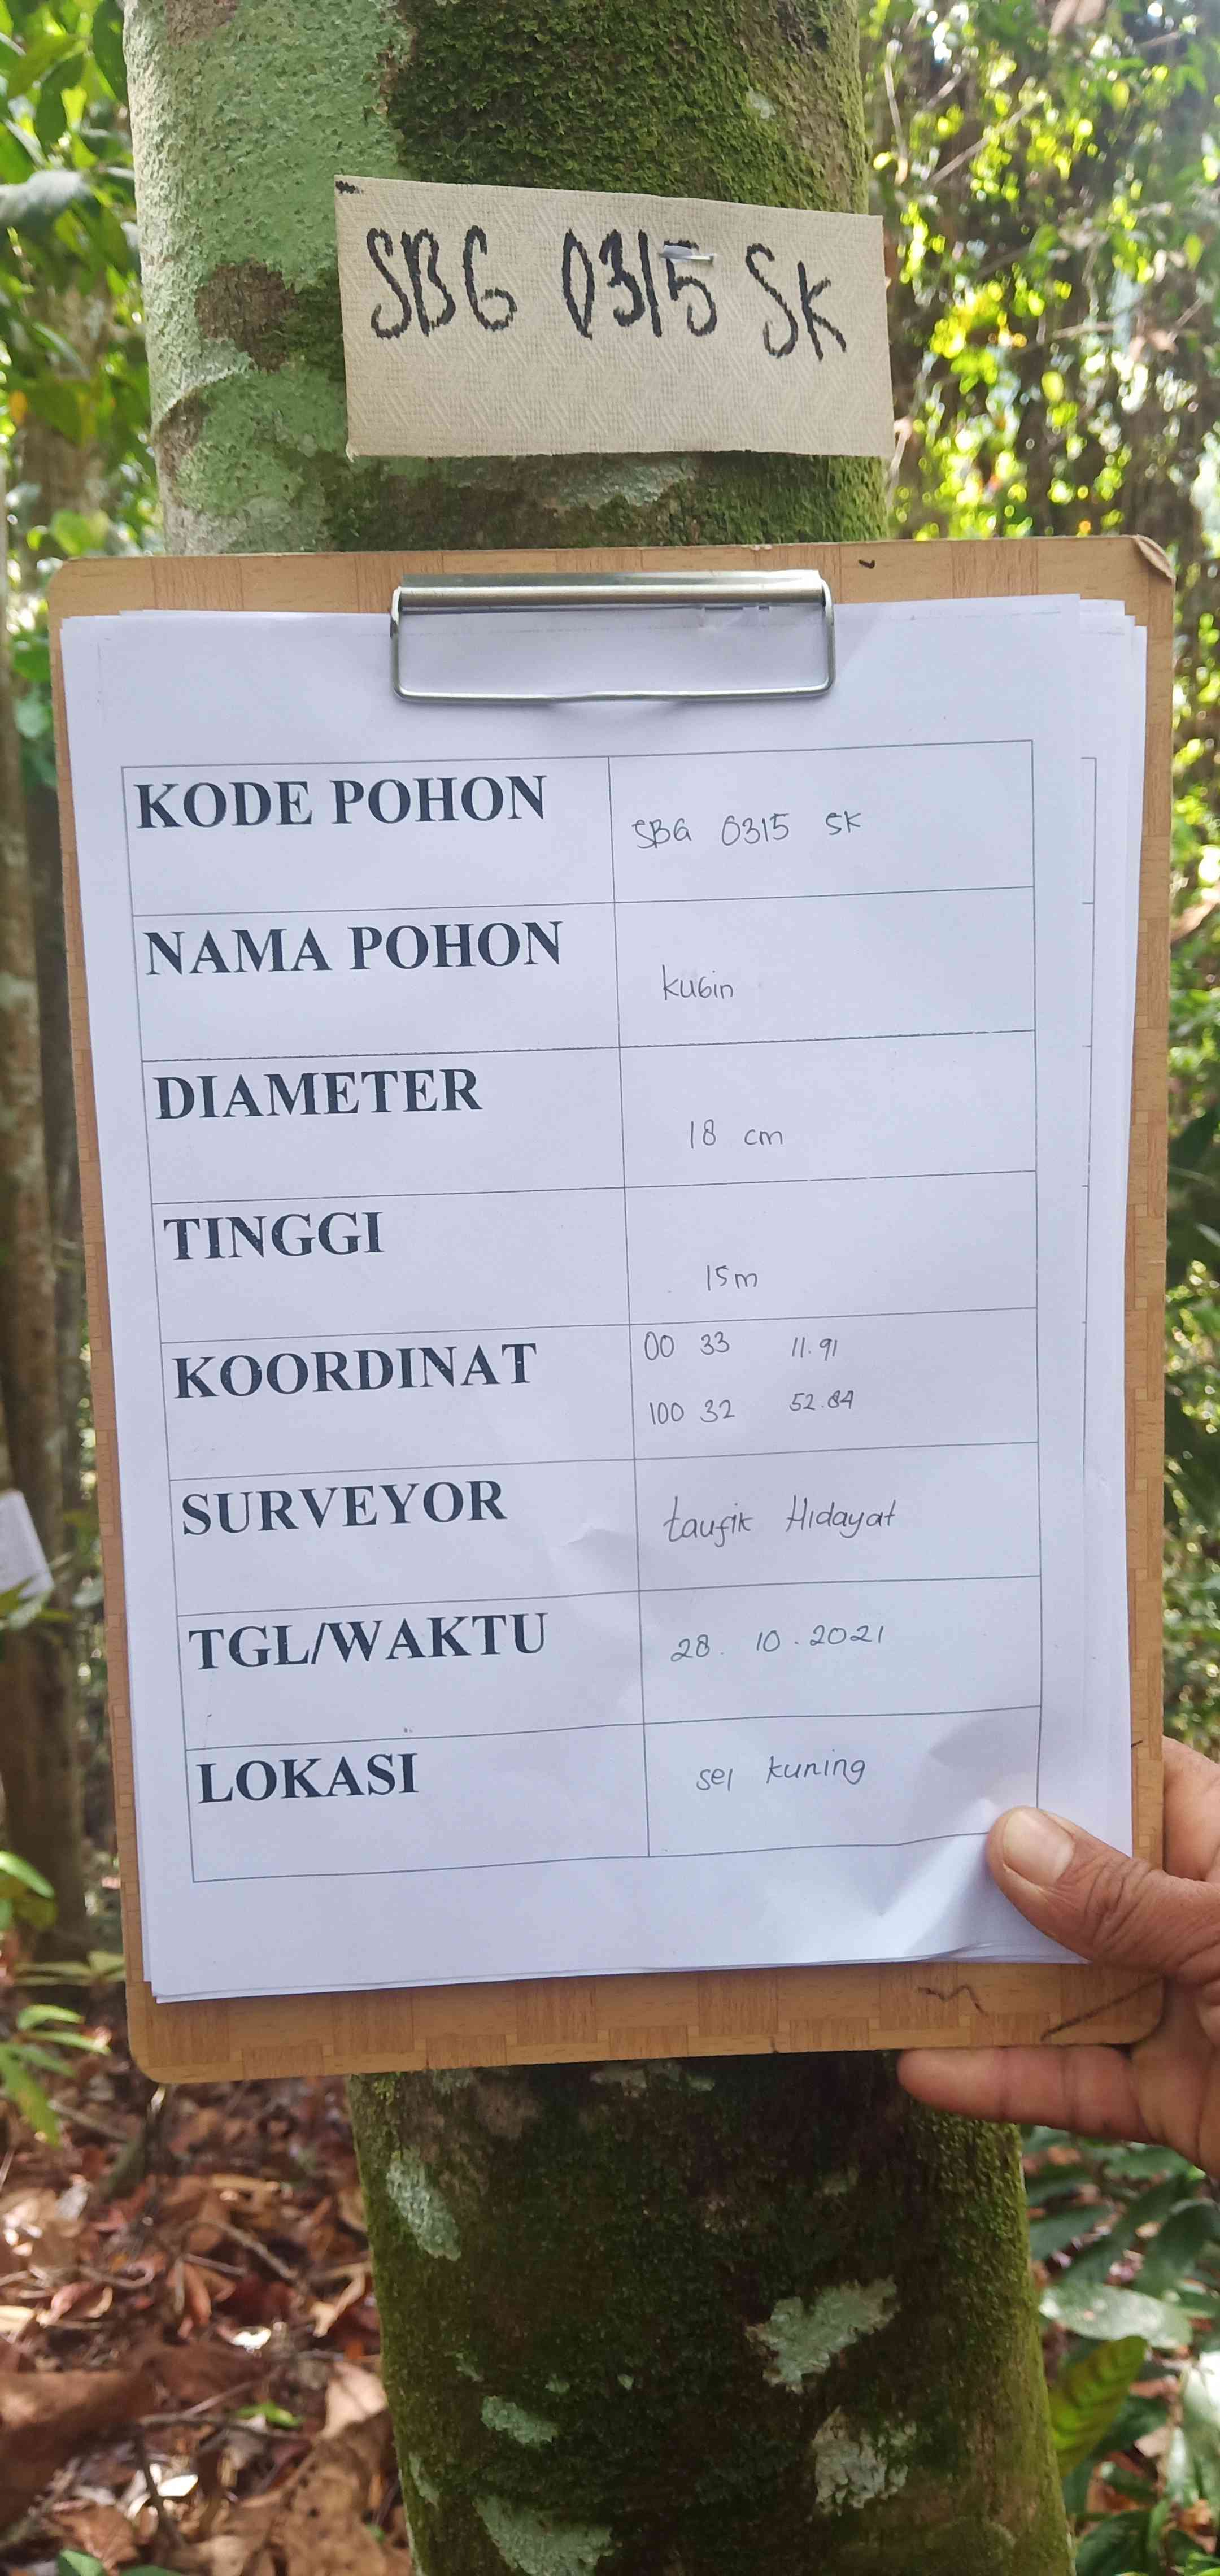 SBG 0315 SK
KODE POHON
SBG 0315 SK
NAMA POHON
kubin
DIAMETER
18 cm
TINGGI
15m
KOORDINAT
00 33 11.91
100 32 52.84
SURVEYOR
taufik Hidayat
TGL/WAKTU
28. 10. 2021
LOKASI
sei kuning